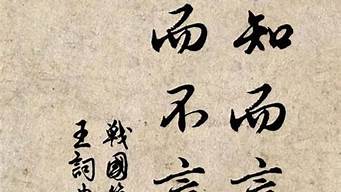 知而言
而不言
戰國
王詞